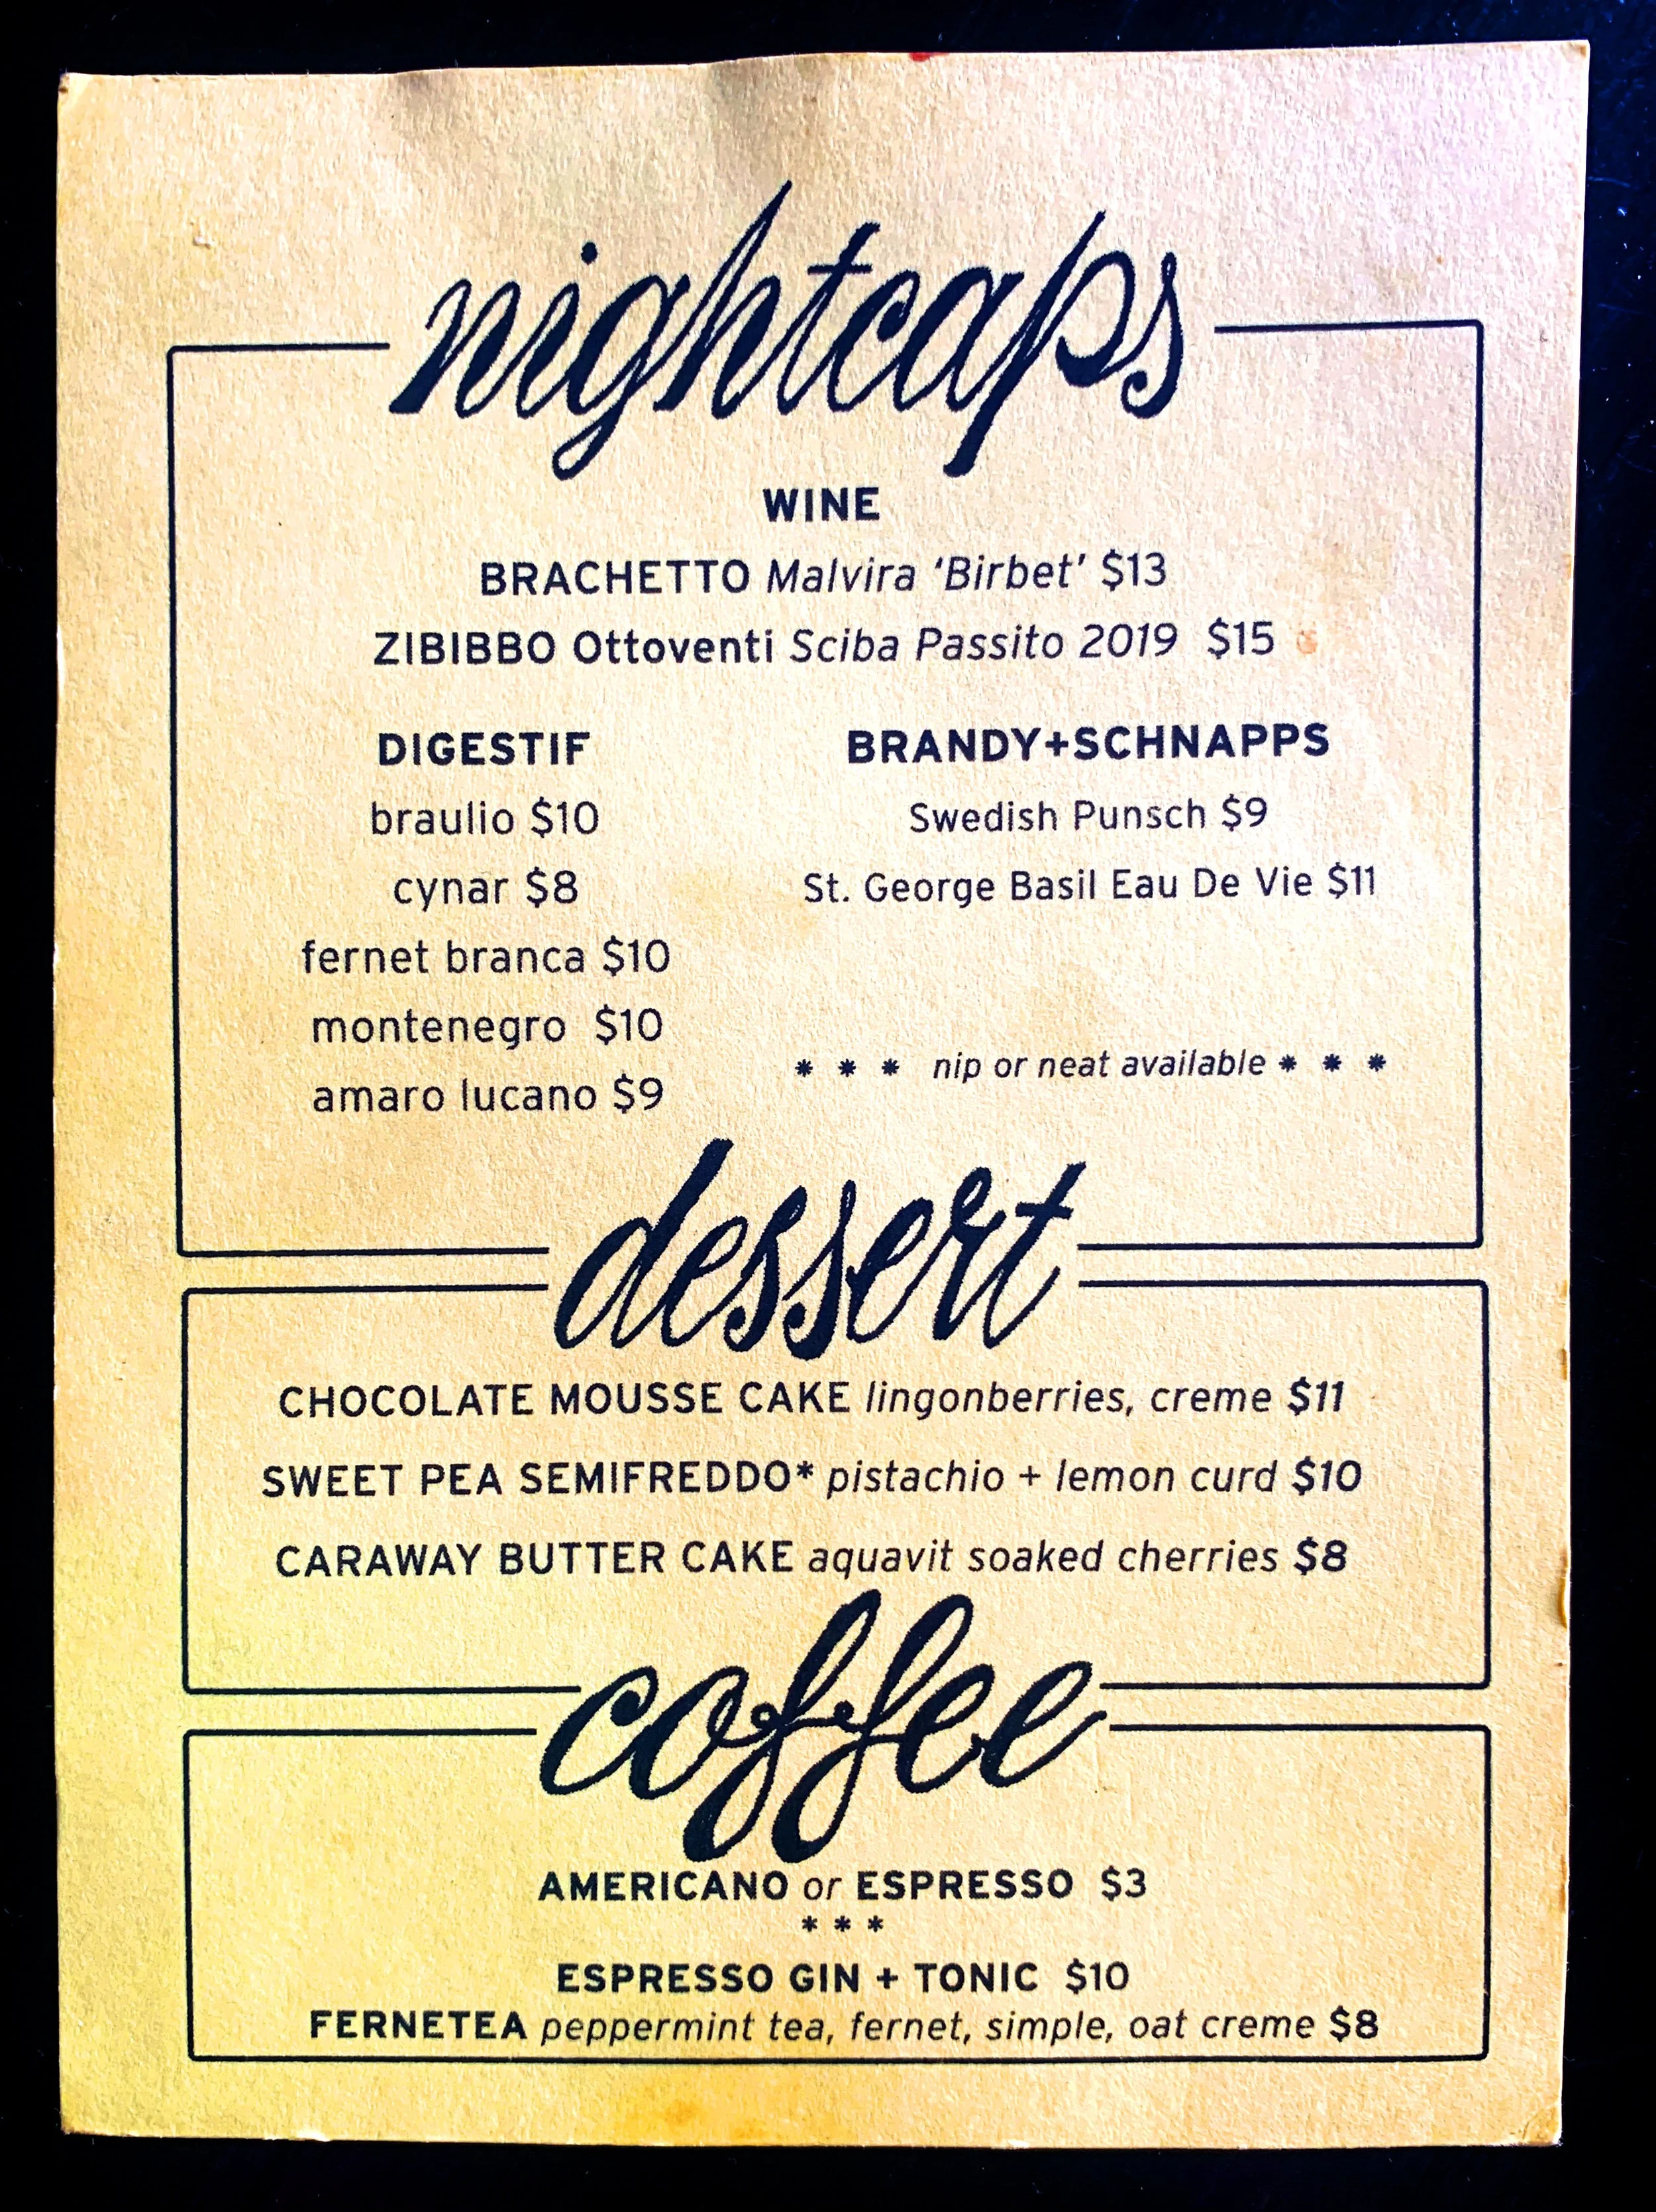 nightcaps
WINE
BRACHETTO Malvira ‘Birbet’ $13
ZIBIBBO Ottoventi Sciba Passito 2019 $15
DIGESTIF
braulio $10
cynar $8
fernet branca $10
montenegro $10
amaro lucano $9
BRANDY+SCHNAPPS
Swedish Punsch $9
St. George Basil Eau De Vie $11
* * * nip or neat available * * *
dessert
CHOCOLATE MOUSSE CAKE lingonberries, creme $11
SWEET PEA SEMIFREDDO* pistachio + lemon curd $10
CARAWAY BUTTER CAKE aquavit soaked cherries $8
coffee
AMERICANO or ESPRESSO $3
* * *
ESPRESSO GIN + TONIC $10
FERNETEA peppermint tea, fernet, simple, oat creme $8